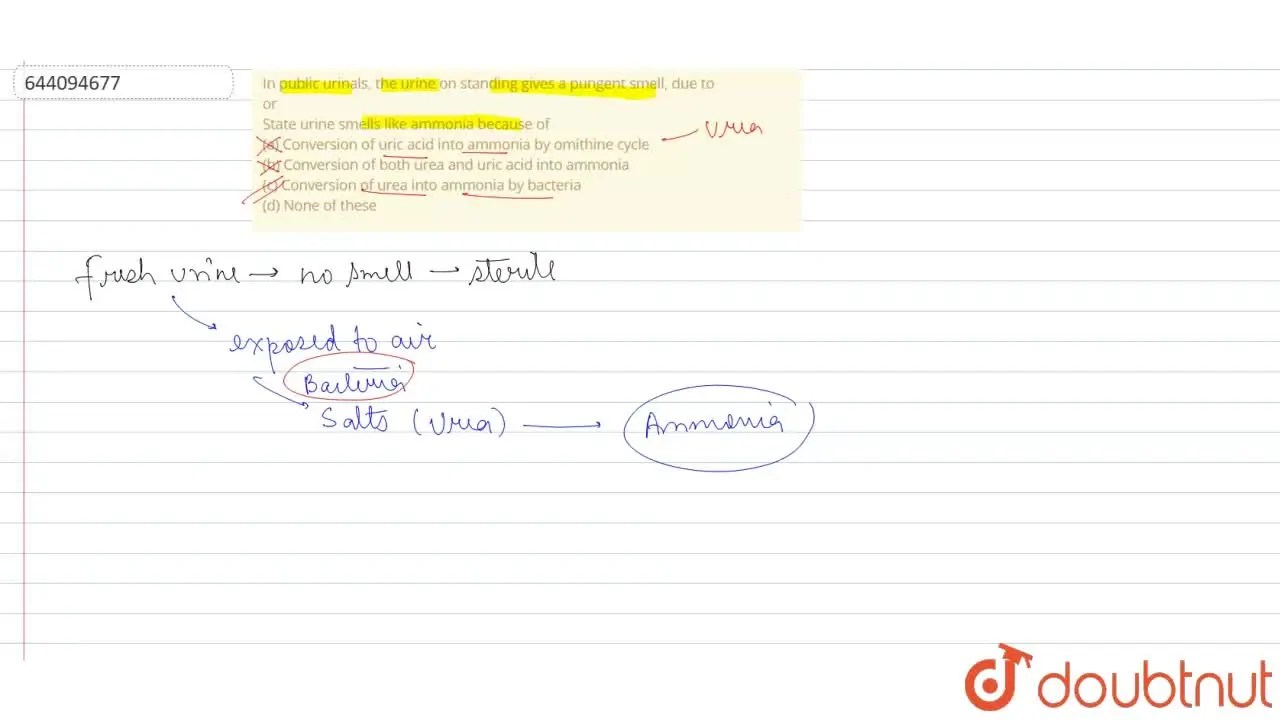 644094677
In public urinals, the urine on standing gives a pungent smell, due to
or
State urine smells like ammonia because of
(a) Conversion of uric acid into ammonia by omithine cycle
Urea
(b) Conversion of both urea and uric acid into ammonia
(c) Conversion of urea into ammonia by bacteria
(d) None of these
fresh urine → no smell → sterile
exposed to air
Bacteria
Salts (Urea) → Ammonia
doubtnut